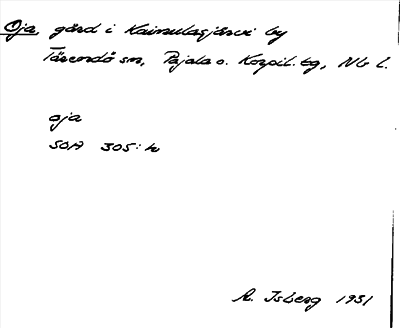 Oja, gård i Kainulasjärvi by
Tärendö sn, Pajala o. Korpil. tg, Nb l.
oja
SOA 305: h
R. Isberg 1931